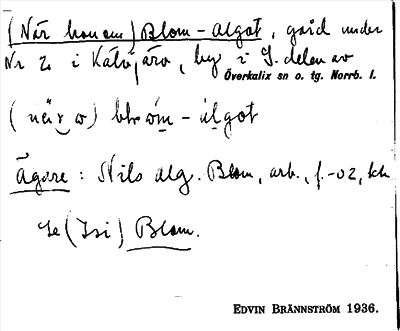 (När hon om) Blom-algot, gård under
Nr 2 i Kälvjärv, by i S. delen av
Överkalix sn o. tg. Norrb. l.
Ägare: Nils Alg. Blom, arb., f.-02, 
Se (Isi) Blom.
EDVIN BRÄNNSTRÖM 1936.